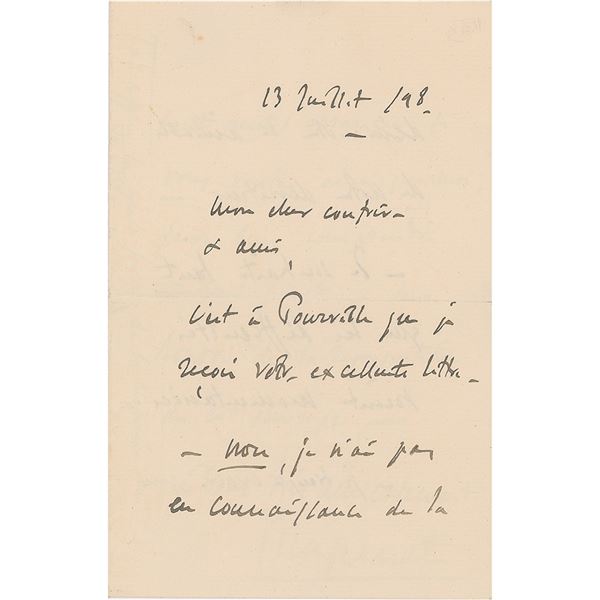 13 Juillet /98.
Mon cher confrère
& ami,
C'est à Pourville que je
reçois votre excellente lettre -
- Non, je n'ai pas
eu connaissance de la